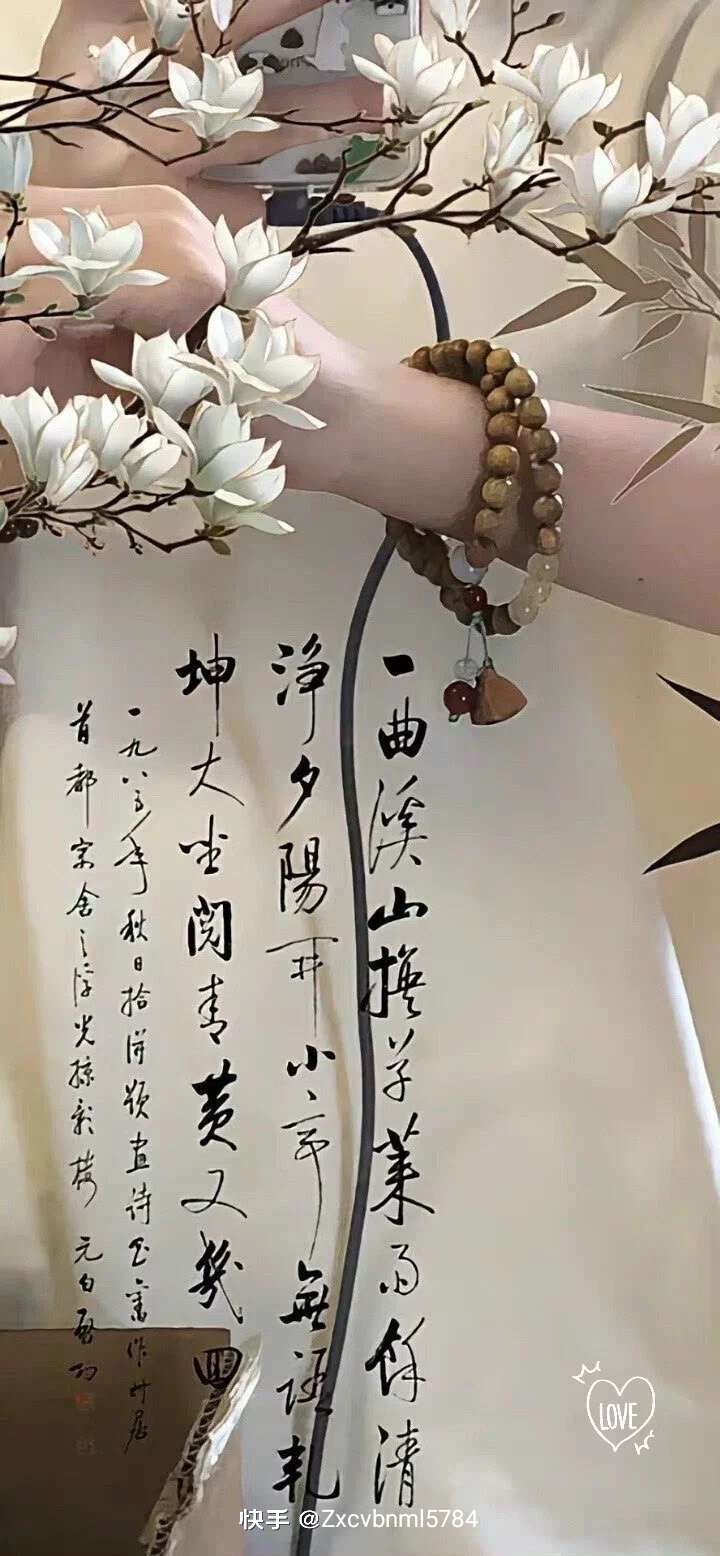 一曲溪山換草萊雨餘清
淨夕陽开小亭無語乾
坤大坐閱青黃又幾回
一九八五年秋日拾得題畫詩舊作時居
首都寓舍之浮光掠影樓 元白啓功
LOVE
快手 @Zxcvbnml5784